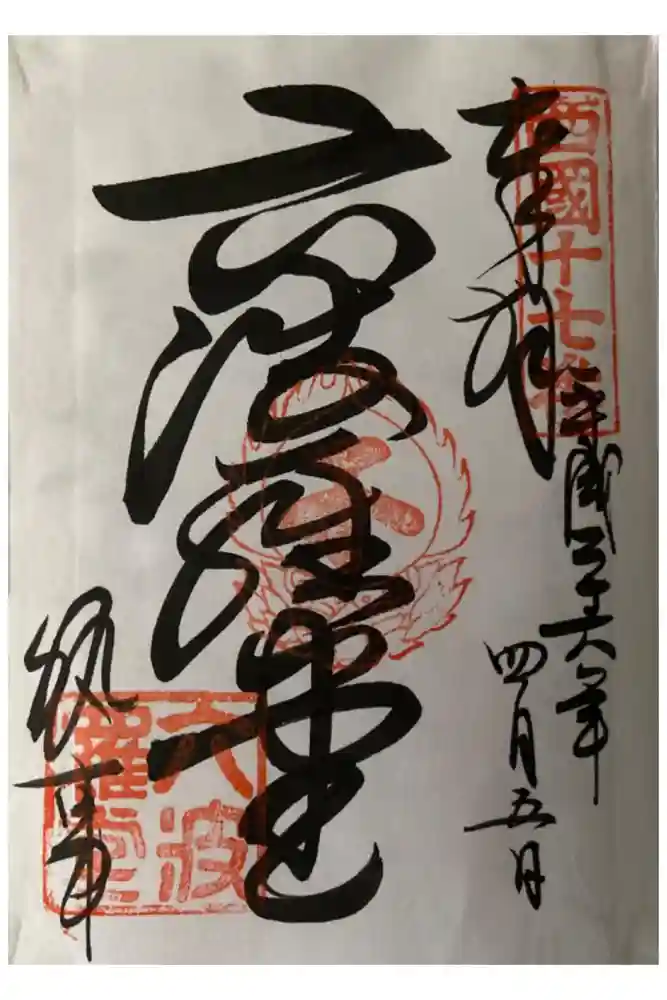 西國十七番
奉拝
平成二十六年
四月五日
六波羅堂
六波
羅堂
執事